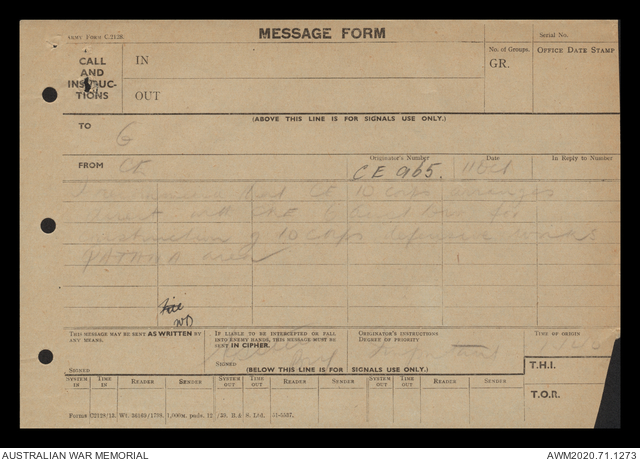 ARMY FORM C.2128
MESSAGE FORM
Serial No.
CALL AND INSTRUC-TIONS
IN
OUT
No. of Groups.
GR.
OFFICE DATE STAMP
(ABOVE THIS LINE IS FOR SIGNALS USE ONLY.)
TO
G
FROM
CE
Originator's Number
CE 965.
Date
11 Oct
In Reply to Number
that CE 10 Corps arranges
direct with for
construction of 10 Corps defensive works
area
File
WD
THIS MESSAGE MAY BE SENT AS WRITTEN BY ANY MEANS.
SIGNED
IF LIABLE TO BE INTERCEPTED OR FALL INTO ENEMY HANDS, THIS MESSAGE MUST BE SENT IN CIPHER.
SIGNED
ORIGINATOR'S INSTRUCTIONS
DEGREE OF PRIORITY
Important
TIME OF ORIGIN
(BELOW THIS LINE IS FOR SIGNALS USE ONLY.)
T.H.I.
T.O.R.
SYSTEM IN
TIME IN
READER
SENDER
SYSTEM OUT
TIME OUT
READER
SENDER
SYSTEM OUT
TIME OUT
READER
SENDER
AUSTRALIAN WAR MEMORIAL
AWM2020.71.1273